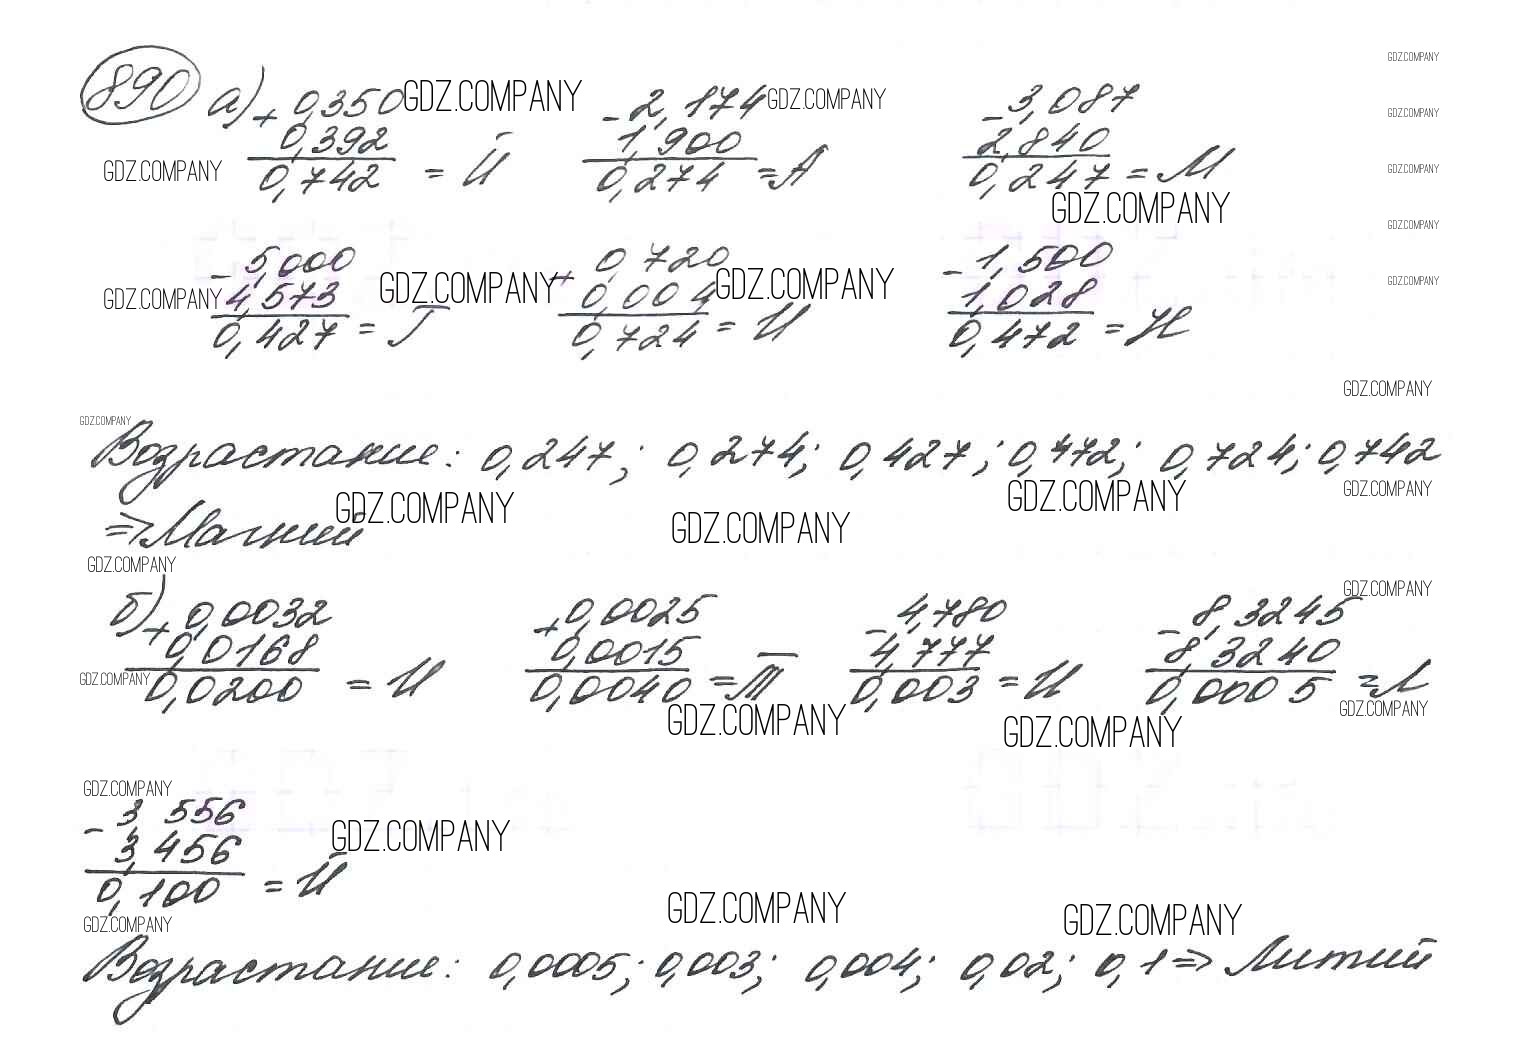 890 а) + 0,350 GDZ.COMPANY - 2,174 GDZ.COMPANY - 3,087 GDZ.COMPANY
0,392 1,900 2,840 GDZ.COMPANY
GDZ.COMPANY 0,742 = Й 0,274 = А 0,247 = М GDZ.COMPANY
GDZ.COMPANY GDZ.COMPANY
- 5,000 + 0,720 - 1,500
GDZ.COMPANY 4,573 GDZ.COMPANY 0,004 GDZ.COMPANY 1,028 GDZ.COMPANY
0,427 = Г 0,724 = И 0,472 = Н
GDZ.COMPANY
GDZ.COMPANY
Возрастание: 0,247; 0,274; 0,427; 0,472; 0,724; 0,742
GDZ.COMPANY GDZ.COMPANY GDZ.COMPANY
=> Магний GDZ.COMPANY
GDZ.COMPANY GDZ.COMPANY
б) + 0,0032 + 0,0025 - 4,780 - 8,3245
0,0168 0,0015 4,777 8,3240
GDZ.COMPANY 0,0200 = И 0,0040 = Т 0,003 = И 0,0005 = Л
GDZ.COMPANY GDZ.COMPANY GDZ.COMPANY
GDZ.COMPANY
- 3,556
3,456 GDZ.COMPANY
0,100 = Й
GDZ.COMPANY GDZ.COMPANY GDZ.COMPANY
Возрастание: 0,0005; 0,003; 0,004; 0,02; 0,1 => Литий